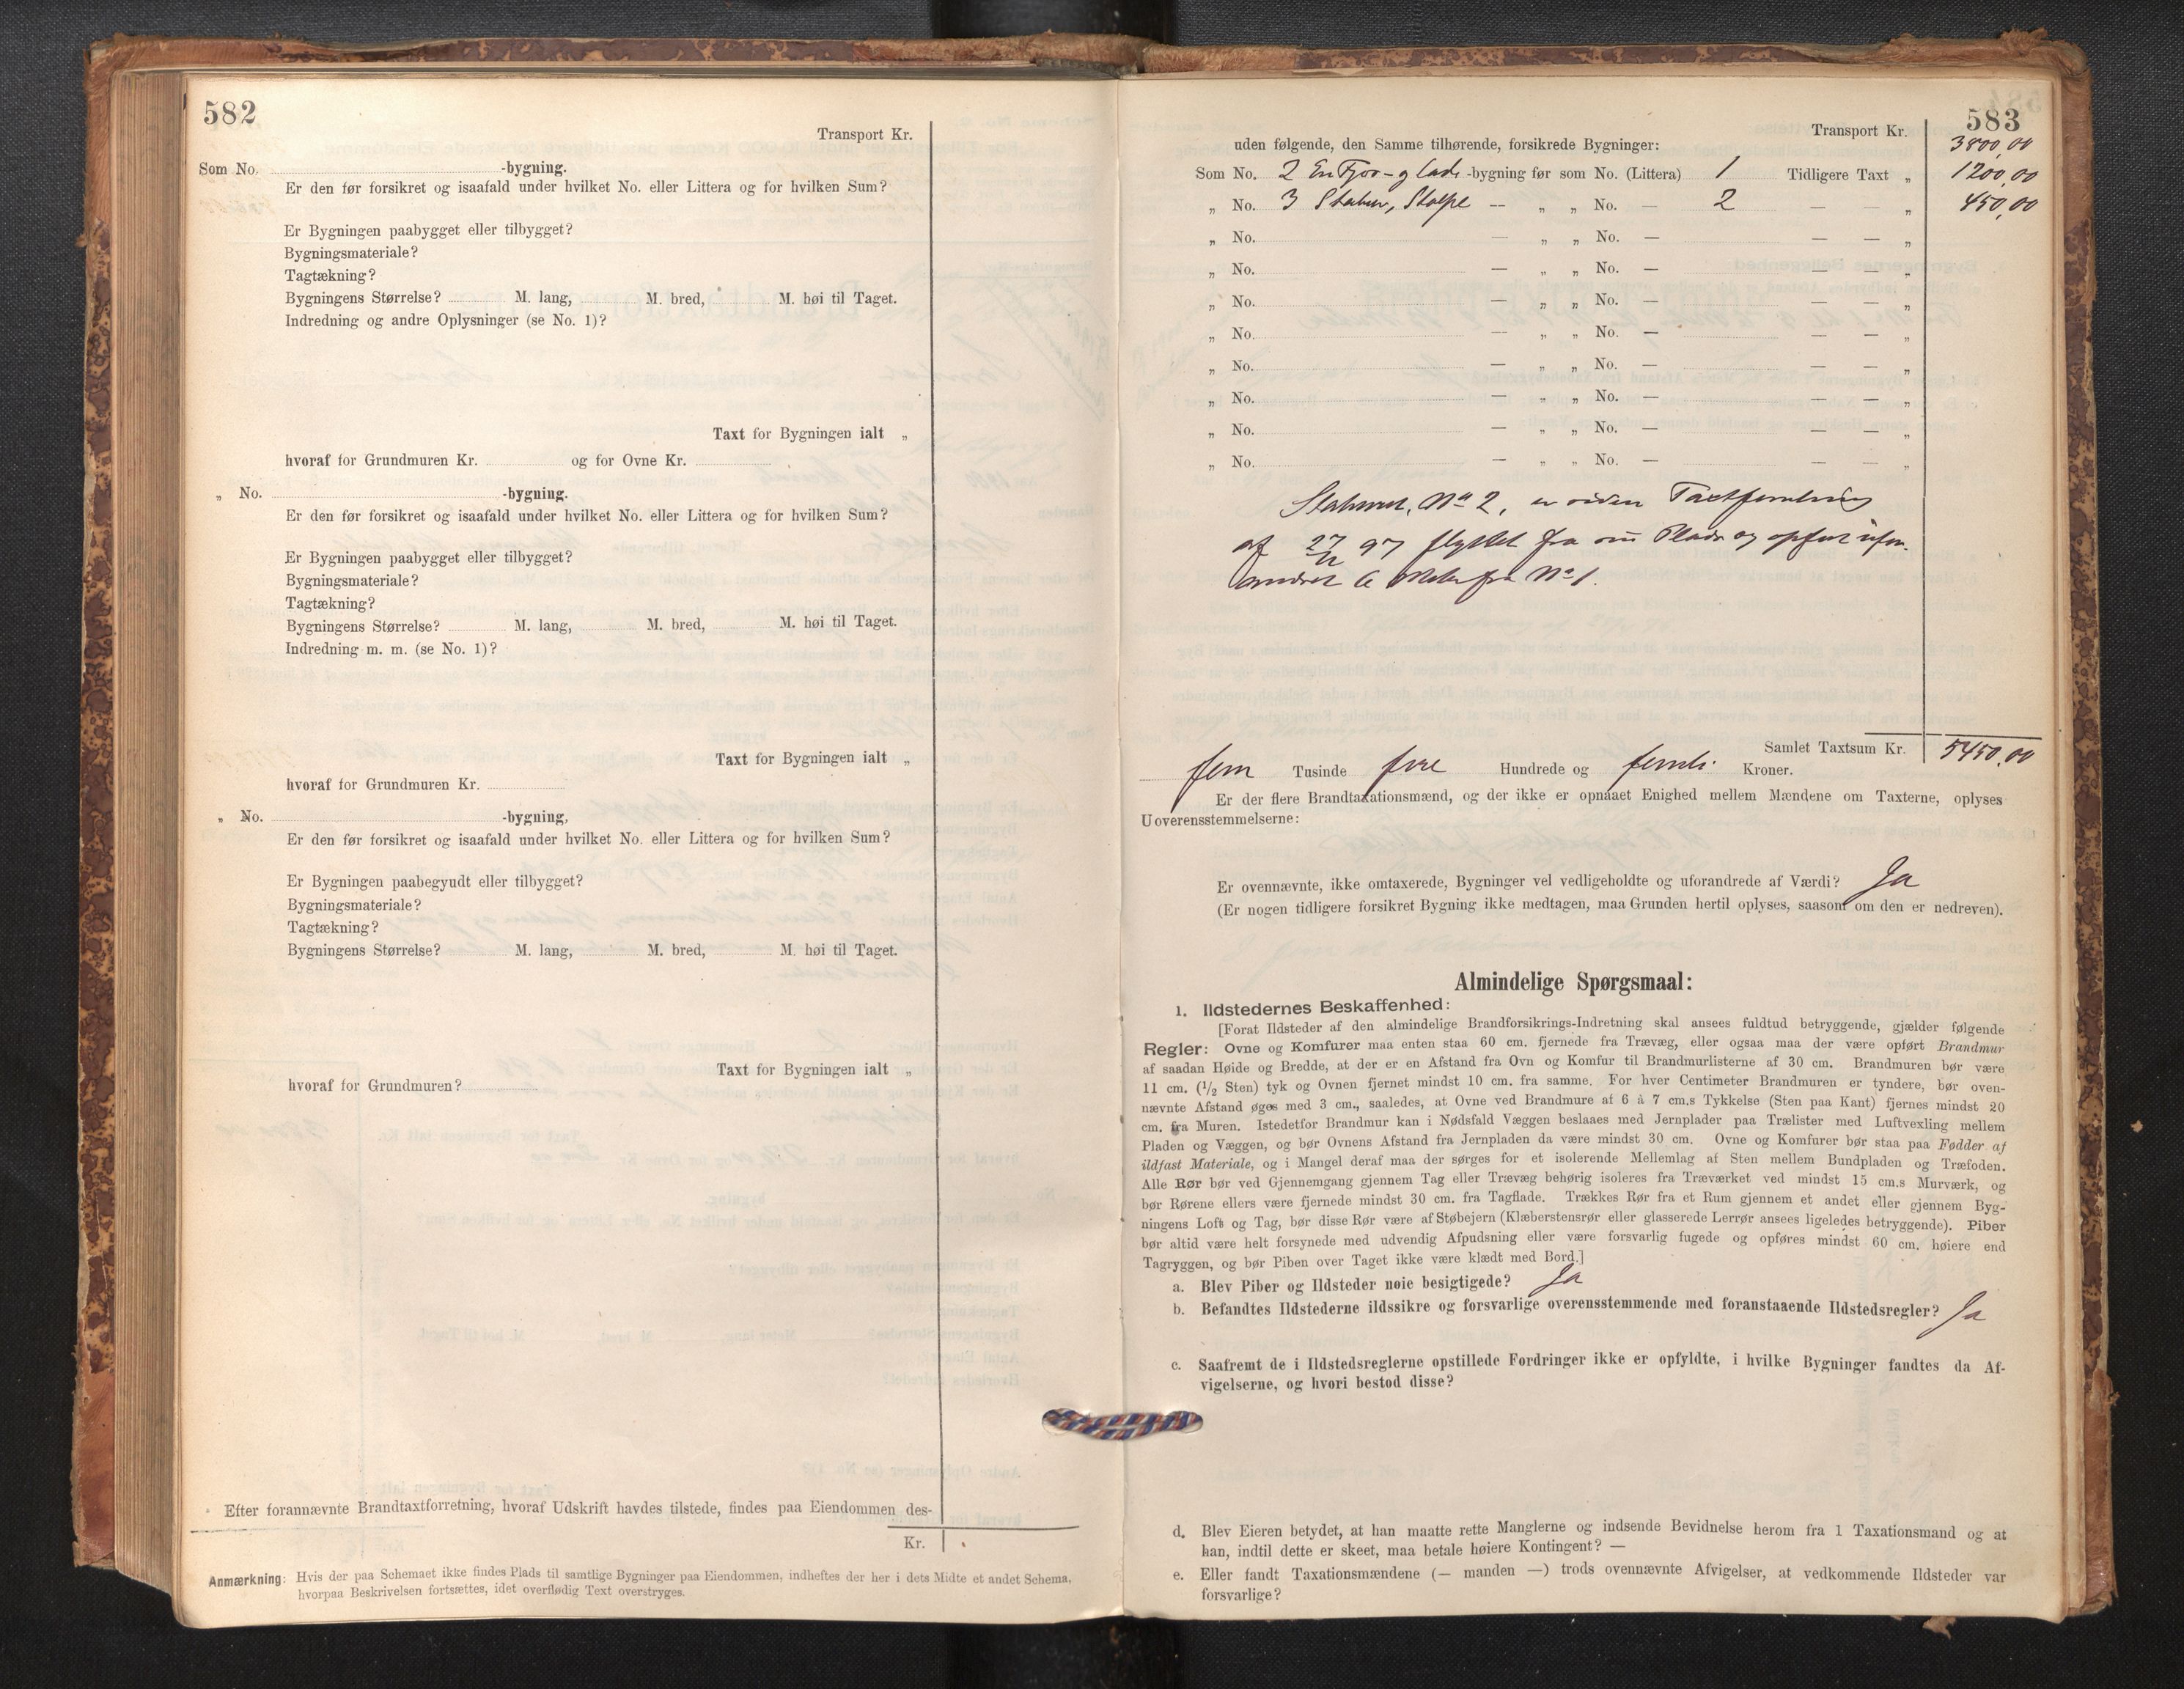 582
Transport Kr.
Som No. -bygning.
Er den før forsikret og isaafald under hvilket No. eller Littera og for hvilken Sum?
Er Bygningen paabygget eller tilbygget?
Bygningsmateriale?
Tagtækning?
Bygningens Størrelse? M. lang, M. bred, M. høi til Taget.
Indredning og andre Oplysninger (se No. 1)?
Taxt for Bygningen ialt „
hvoraf for Grundmuren Kr. og for Ovne Kr.
„ No. -bygning.
Er den før forsikret og isaafald under hvilket No. eller Littera og for hvilken Sum?
Er Bygningen paabygget eller tilbygget?
Bygningsmateriale?
Tagtækning?
Bygningens Størrelse? M. lang, M. bred, M. høi til Taget.
Indredning m. m. (se No. 1)?
Taxt for Bygningen ialt „
hvoraf for Grundmuren Kr.
„ No. -bygning,
Er den før forsikret og isaafald under hvilket No. eller Littera og for hvilken Sum?
Er Bygningen paabegyudt eller tilbygget?
Bygningsmateriale?
Tagtækning?
Bygningens Størrelse? M. lang, M. bred, M. høi til Taget.
Taxt for Bygningen ialt „
hvoraf for Grundmuren?
Efter forannævnte Brandtaxtforretning, hvoraf Udskrift havdes tilstede, findes paa Eiendommen des-
Kr.
Anmærkning: Hvis der paa Schemaet ikke findes Plads til samtlige Bygninger paa Eiendommen, indheftes der her i dets Midte et andet Schema,
hvorpaa Beskrivelsen fortsættes, idet overflødig Text overstryges.
583
Transport Kr. 3800,00
uden følgende, den Samme tilhørende, forsikrede Bygninger:
Som No. 2 En Fjøs- og Lade -bygning før som No. (Littera) 1 Tidligere Taxt „ 1200,00
„ No. 3 Stabur, Stolpe — „ „ No. — 2 — — „ 450,00
„ No. — „ „ No. — — — „
„ No. — „ „ No. — — — „
„ No. — „ „ No. — — — „
„ No. — „ „ No. — — — „
„ No. — „ „ No. — — — „
„ No. — „ „ No. — — — „
„ No. — „ „ No. — — — „
„ No. — „ „ No. — — — „
Staburet, No 2, er siden Taxtforretning
af 27/11 97 flyttet fra sin Plads og opført ufor-
andret 6 Meter fra No 1.
Samlet Taxtsum Kr. 5450,00
fem Tusinde fire Hundrede og femti Kroner.
Er der flere Brandtaxationsmænd, og der ikke er opnaaet Enighed mellem Mændene om Taxterne, oplyses
Uoverensstemmelserne:
Er ovennævnte, ikke omtaxerede, Bygninger vel vedligeholdte og uforandrede af Værdi? Ja
(Er nogen tidligere forsikret Bygning ikke medtagen, maa Grunden hertil oplyses, saasom om den er nedreven).
Almindelige Spørgsmaal:
1. Ildstedernes Beskaffenhed:
[Forat Ildsteder af den almindelige Brandforsikrings-Indretning skal ansees fuldtud betryggende, gjælder følgende
Regler: Ovne og Komfurer maa enten staa 60 cm. fjernede fra Trævæg, eller ogsaa maa der være opført Brandmur
af saadan Høide og Bredde, at der er en Afstand fra Ovn og Komfur til Brandmurlisterne af 30 cm. Brandmuren bør være
11 cm. (1/2 Sten) tyk og Ovnen fjernet mindst 10 cm. fra samme. For hver Centimeter Brandmuren er tyndere, bør oven-
nævnte Afstand øges med 3 cm., saaledes, at Ovne ved Brandmure af 6 à 7 cm.s Tykkelse (Sten paa Kant) fjernes mindst 20
cm. fra Muren. Istedetfor Brandmur kan i Nødsfald Væggen beslaaes med Jernplader paa Trælister med Luftvexling mellem
Pladen og Væggen, og bør Ovnens Afstand fra Jernpladen da være mindst 30 cm. Ovne og Komfurer bør staa paa Fødder af
ildfast Materiale, og i Mangel deraf maa der sørges for et isolerende Mellemlag af Sten mellem Bundpladen og Træfoden.
Alle Rør bør ved Gjennemgang gjennem Tag eller Trævæg behørig isoleres fra Træværket ved mindst 15 cm.s Murværk, og
bør Rørene ellers være fjernede mindst 30 cm. fra Tagflade. Trækkes Rør fra et Rum gjennem et andet eller gjennem Byg-
ningens Loft og Tag, bør disse Rør være af Støbejern (Klæberstensrør eller glasserede Lerrør ansees ligeledes betryggende). Piber
bør altid være helt forsynede med udvendig Afpudsning eller være forsvarlig fugede og opføres mindst 60 cm. høiere end
Tagryggen, og bør Piben over Taget ikke være klædt med Bord.]
a. Blev Piber og Ildsteder nøie besigtigede? Ja
b. Befandtes Ildstederne ildssikre og forsvarlige overensstemmende med foranstaaende Ildstedsregler? Ja
c. Saafremt de i Ildstedsreglerne opstillede Fordringer ikke er opfyldte, i hvilke Bygninger fandtes da Af-
vigelserne, og hvori bestod disse?
d. Blev Eieren betydet, at han maatte rette Manglerne og indsende Bevidnelse herom fra 1 Taxationsmand og at
han, indtil dette er skeet, maa betale høiere Kontingent? —
e. Eller fandt Taxationsmændene (— manden —) trods ovennævnte Afvigelser, at vedkommende Ildsteder var
forsvarlige?